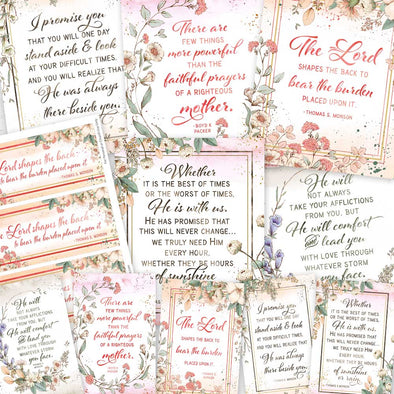 I promise you
THAT YOU WILL ONE DAY
stand aside & look
AT YOUR DIFFICULT TIMES,
AND YOU WILL REALIZE THAT
He was always
there beside you.
There are
FEW THINGS
more powerful
THAN THE
faithful prayers
OF A RIGHTEOUS
mother.
-BOYD K
PACKER
The Lord
SHAPES THE BACK TO
bear the burden
PLACED UPON IT.
- THOMAS S. MONSON
Lord shapes the back
to bear the burden placed upon it.
-THOMAS S. MONSON
Lord shapes the back
to bear the burden placed upon it.
-THOMAS S. MONSON
Whether
IT IS THE BEST OF TIMES
OR THE WORST OF TIMES,
He is with us.
HE HAS PROMISED THAT
THIS WILL NEVER CHANGE...
WE TRULY NEED HIM
EVERY HOUR,
WHETHER THEY BE HOURS
of sunshine
He will
NOT ALWAYS
TAKE YOUR AFFLICTIONS
FROM YOU, BUT
He will comfort
and lead you
WITH LOVE THROUGH
WHATEVER STORM
YOU FACE.
He will
NOT ALWAYS
TAKE YOUR AFFLICTIONS
FROM YOU, BUT
He will comfort
and lead you
WITH LOVE THROUGH
WHATEVER STORM
YOU FACE.
There are
FEW THINGS
more powerful
THAN THE
faithful prayers
OF A RIGHTEOUS
mother.
The Lord
SHAPES THE BACK TO
bear the burden
PLACED UPON IT.
I promise you
THAT YOU WILL ONE DAY
stand aside & look
AT YOUR DIFFICULT TIMES,
AND YOU WILL REALIZE THAT
He was always
there beside you.
Whether
IT IS THE BEST OF TIMES
OR THE WORST OF TIMES,
He is with us.
HE HAS PROMISED THAT
THIS WILL NEVER CHANGE...
WE TRULY NEED HIM
EVERY HOUR,
WHETHER THEY BE HOURS
of sunshine
or rain.